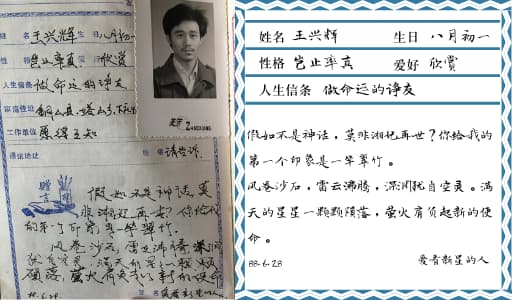 姓名 王兴辉 生日 八月初一
性格 岂止率真 爱好 欣赏
人生信条 做命运的诤友
家庭住址
工作单位 愿得三知
通讯地址 邮编 请告诉
赠言
假如不是神话,莫
非湘妃再世?你给我
的第一个印象是一竿翠竹。
风卷沙石,雷亚沸腾,深涧
犹自空灵。满天的星星一颗颗
陨落,萤火肩负起新的使命
88.6.28
姓名 王兴辉 生日 八月初一
性格 岂止率真 爱好 欣赏
人生信条 做命运的诤友
假如不是神话,莫非湘妃再世?你给我的
第一个印象是一竿翠竹。
风卷沙石,雷云沸腾,深涧犹自空灵。满
天的星星一颗颗陨落,萤火肩负起新的使
命。
88-6-28 爱看新星的人